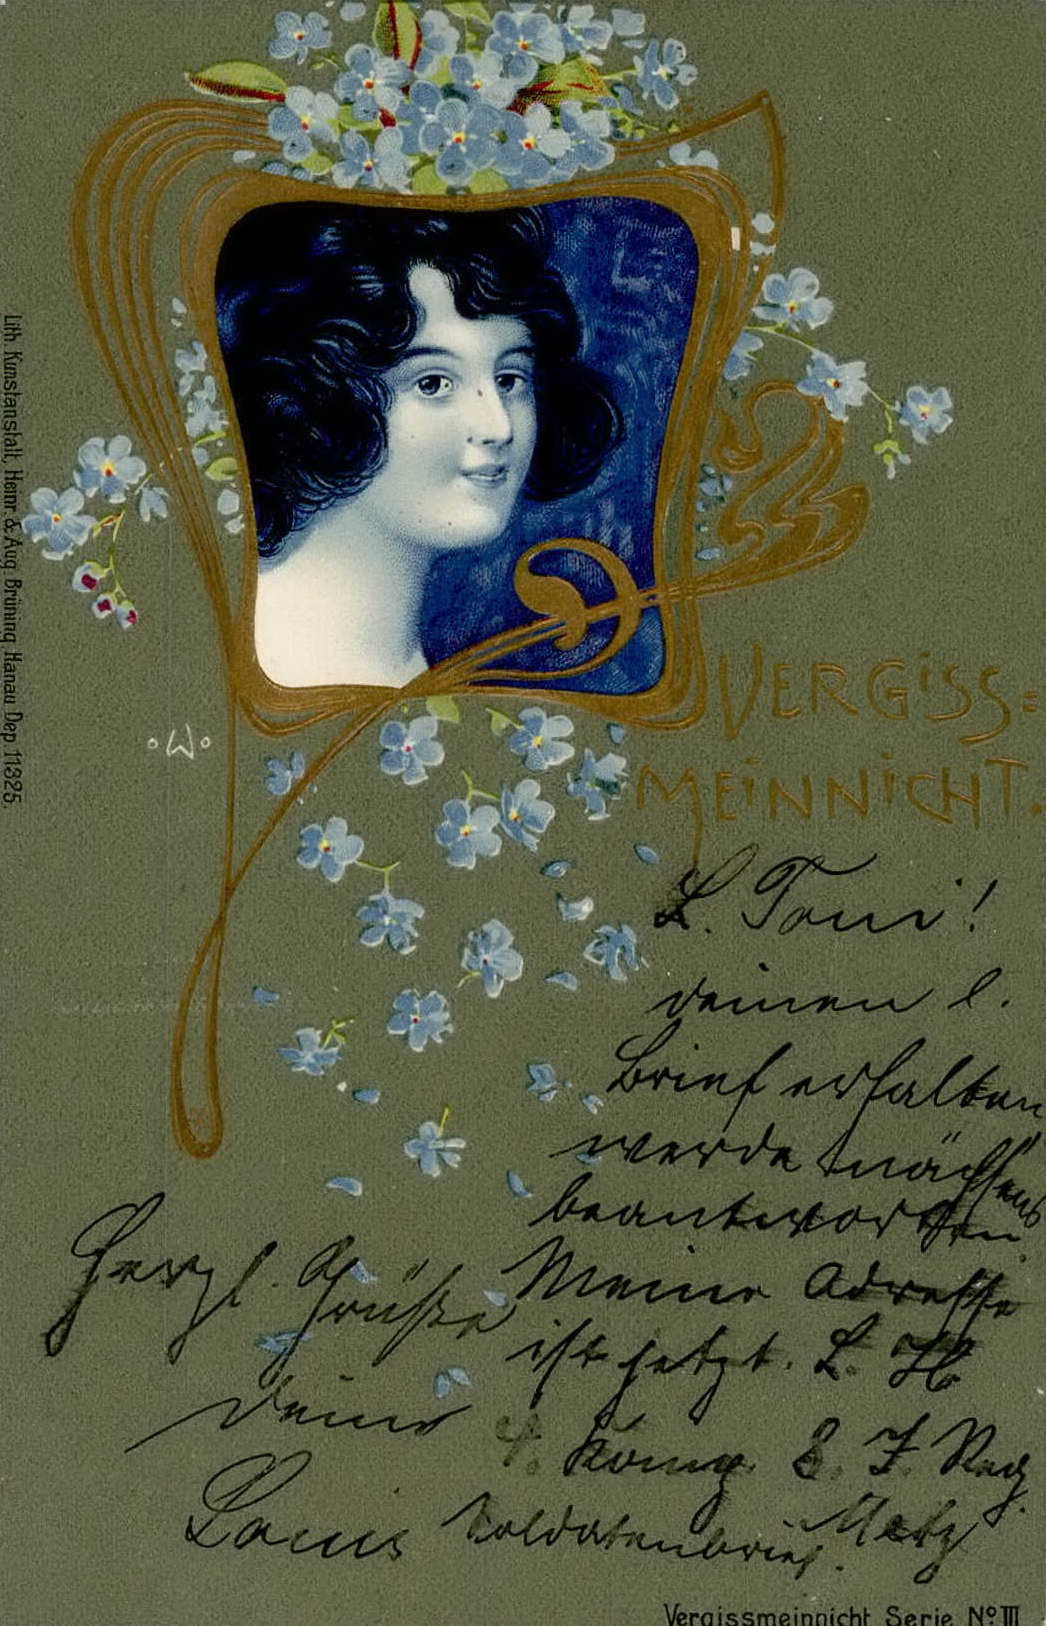 Lith. Kunstanstalt, Heinr. & Aug. Brüning, Hanau Dep. 11325.
W
VERGISS=
MEINNICHT.
L. Toni!
deinen l.
Brief erhalten
werde nächstens
beantworten.
Meine Adresse
ist jetzt. L. H
4. Komp. 8. J. Reg.
Metz
Soldatenbrief.
Herzl. Grüße
Deine
Louis
Vergissmeinnicht Serie No III